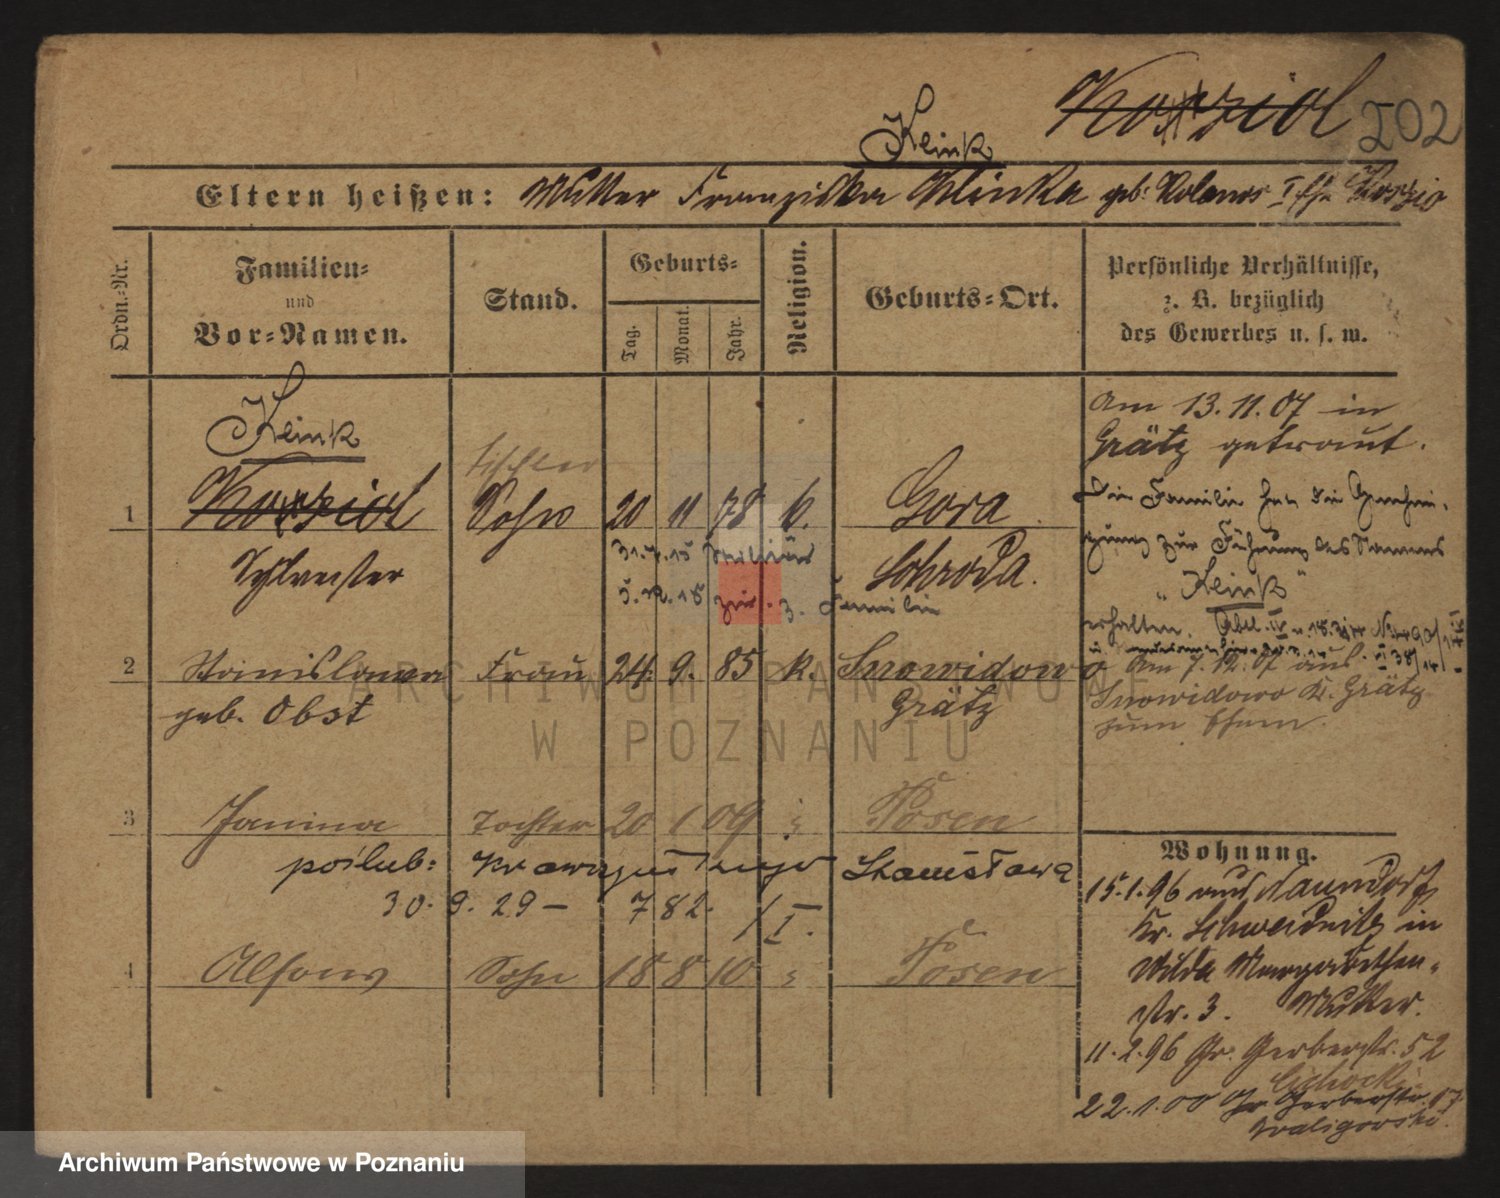 Kosziol 202
Klink
Eltern heißen: Mutter Franziska Klinka geb.
Ordn.-Nr.
Familien-
und
Vor-Namen.
Stand.
Geburts-
Tag.
Monat.
Jahr.
Religion.
Geburts-Ort.
Persönliche Verhältnisse,
z. B. bezüglich
des Gewerbes u. s. w.
Klink
Am 13.11.07 in
Grätz getraut.
Tischler
1 Kosziol Sohn 20 11 78 k. Gora
Sylvester Schroda.
31.7.15 Militär
5.12.18 zur. z. Familie
Die Familie hat die Genehmi-
gung zur Führung des Namens
„Klink"
erhalten.
2 Stanislawa Frau 24. 9. 85 k. Snowidowo
geb. Obst Grätz
Am 7.12.07 aus
Snowidowo K. Grätz
zum Ehem.
3 Janina Tochter 20 1 09 Posen
poślub: Stanisława
30.9.29 – 782. / I.
4 Alfons Sohn 18 8 10 Posen
Wohnung.
15.1.96 aus Naundorf
Kr. Schweidnitz in
Wilda Margarethen-
str. 3. Mutter.
11.2.96 Gr. Gerberstr. 52
Cichocki
22.1.00 Gr. Gerberstr.
Waligorski.
ARCHIWUM PAŃSTWOWE
W POZNANIU
Archiwum Państwowe w Poznaniu